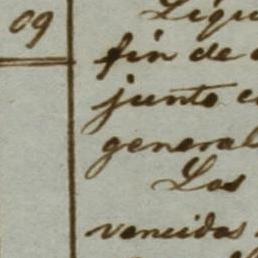 09
Liqu
fin de
junto c
general
Los
vencidos